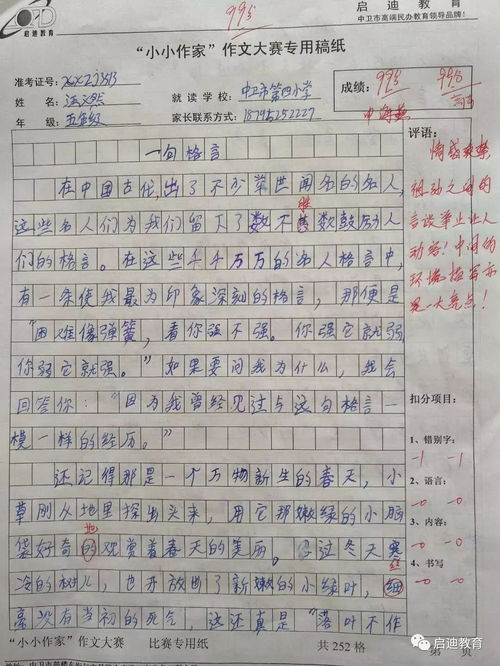 99分
启迪教育
启迪教育
中卫市高端民办教育领导品牌!
“小小作家”作文大赛专用稿纸
准考证号:
姓 名:
年 级: 五年级
就读学校: 中卫市第四小学
家长联系方式: 18795252227
成绩: 99分 99分
评语:
情感真挚
言谈举止让人
动容!中间的
环境描写亦
是一大亮点!
一句格言
在中国古代,出了不少举世闻名的名人,
这些名人们为我们留下了数不胜数鼓励人
们的格言。在这些千千万万的名人格言中,
有一条使我最为印象深刻的格言,那便是
“困难像弹簧,看你强不强。你强它就弱,
你弱它就强。”如果要问我为什么,我会
回答你:“因为我曾经见过与这句格言一
模一样的经历。”
还记得那是一个万物新生的春天,小
草刚从地里探出头来,用它那嫩绿的小脑
袋好奇的地观赏着春天的美丽。过冬天寒
冷的树儿,也开放出了新嫩的小绿叶,细
毫没有当初的死气,这还真是“落叶不作
扣分项目:
1、错别字:
-1 -1
2、语言:
-0 -0
3、内容:
-0 -0
4、书写
-0 -0
“小小作家”作文大赛 比赛专用纸 共 252 格 第 页
启迪教育